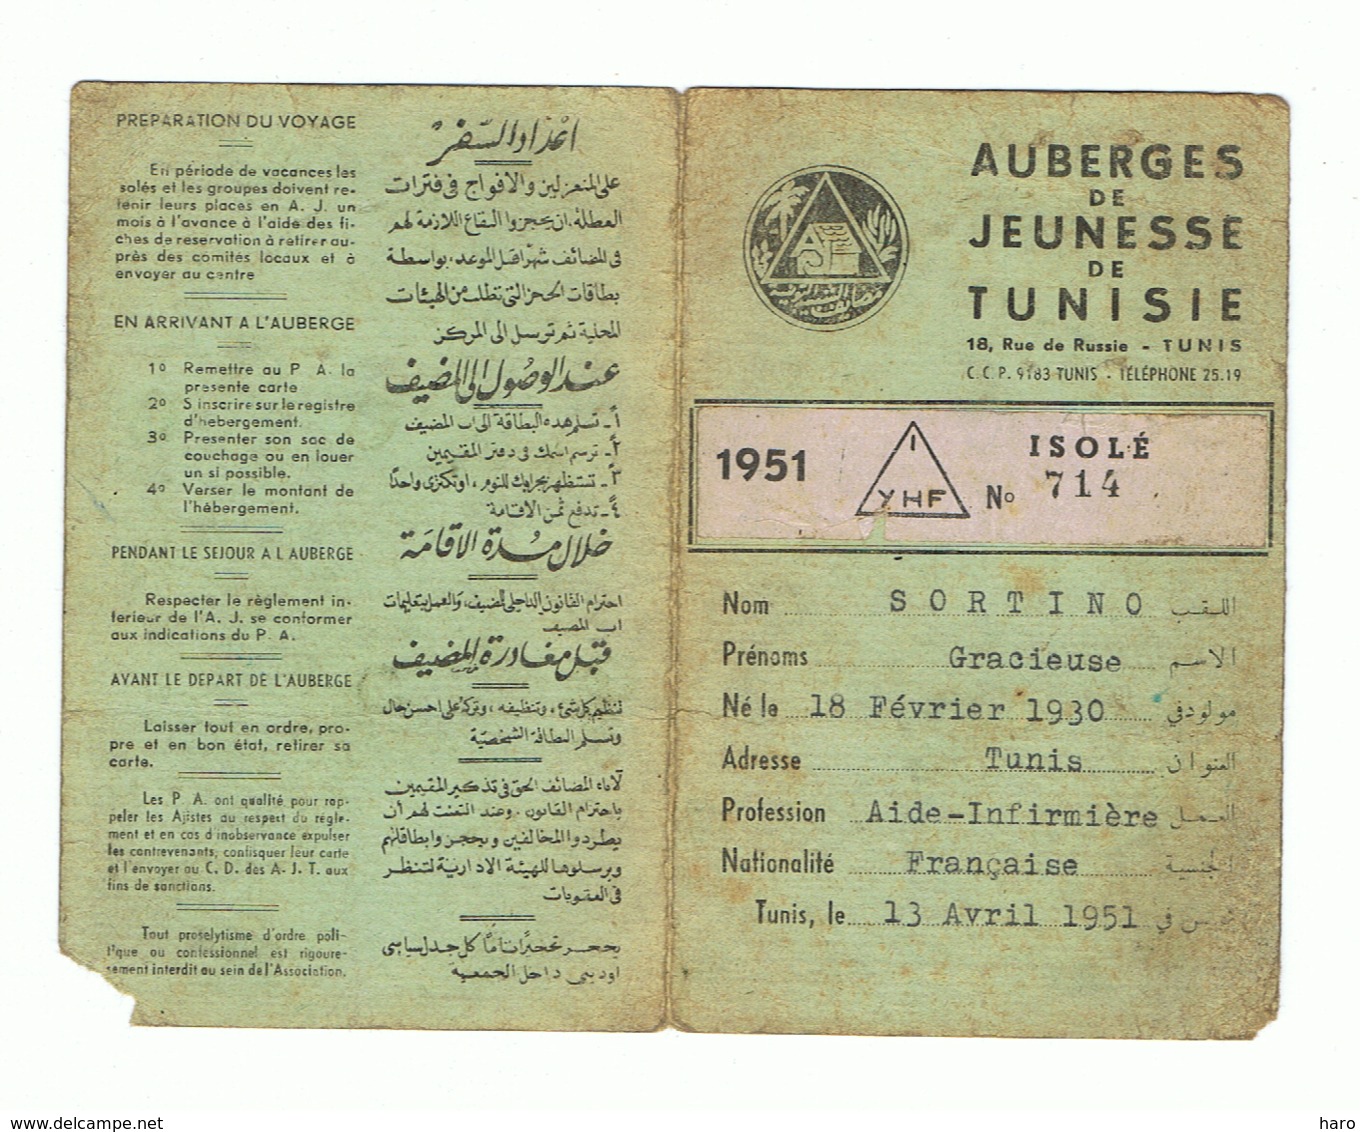 PREPARATION DU VOYAGE
En période de vacances les
solés et les groupes doivent re-
tenir leurs places en A. J. un
mois à l'avance à l'aide des fi-
ches de reservation à retirer au-
près des comités locaux et à
envoyer au centre
EN ARRIVANT A L'AUBERGE
1º Remettre au P A. la
presente carte
2º S inscrire sur le registre
d'hebergement.
3º Presenter son sac de
couchage ou en louer
un si possible.
4º Verser le montant de
l'hèbergement.
PENDANT LE SEJOUR A L AUBERGE
Respecter le règlement in-
terieur de l'A. J. se conformer
aux indications du P. A.
AVANT LE DEPART DE L'AUBERGE
Laisser tout en ordre, pro-
pre et en bon état, retirer sa
carte.
Les P A. ont qualité pour rap-
peler les Ajistes au respect du règle-
ment et en cas d'inobservance expulser
les contrevenants, confisquer leur carte
et l'envoyer au C. D. des A. J. T. aux
fins de sanctions.
Tout proselytisme d'ordre poli-
tique ou confessionnel est rigoureu-
sement interdit au sein de l'Association.
اعداد السّفر
على المنعزلين والافواج في فترات
العطلة. ان يحجزوا البقاع اللازمة لهم
في المضائف شهرا قبل الموعد، بواسطة
بطاقات الحجز التي تطلب من الهيئات
المحلية ثم ترسل الى المركز
عند الوصول الى المضيف
١ـ تسلم هذه البطاقة الى اب المضيف
٢ـ ترسم اسمك في دفتر المقيمين
٣ـ تستظهر بجرابك للنوم، او تكتري واحدا
٤ـ تدفع ثمن الاقامة
خلال مدة الاقامة
احترام القانون الداخلي للمضيف، والعمل بتعليمات
اب المضيف
قبل مغادرة المضيف
تنظيم كل شئ، وتنظيفه، وتركه على احسن حال
وتسلم البطاقة الشخصيّة
لآباء المضائف الحق في تذكير المقيمين
باحترام القانون. وعند التعنت لهم أن
يطردوا المخالفين ويحجزوا بطاقاتهم
ويرسلوها للهيئة الادارية لتنظر
في العقوبات
يحجر تحجيرا تاما كل جدل سياسي
او ديني داخل الجمعية
AUBERGES
DE
JEUNESSE
DE
TUNISIE
18, Rue de Russie - TUNIS
C. C. P. 9183 TUNIS - TÉLÉPHONE 25.19
AJ
1951 I YHF ISOLÉ
No 714
Nom SORTINO اللقب
Prénoms Gracieuse الاسم
Né le 18 Février 1930 مولود في
Adresse Tunis العنوان
Profession Aide-Infirmière العمل
Nationalité Française الجنسية
Tunis, le 13 Avril 1951 تونس في
www.delcampe.net
haro